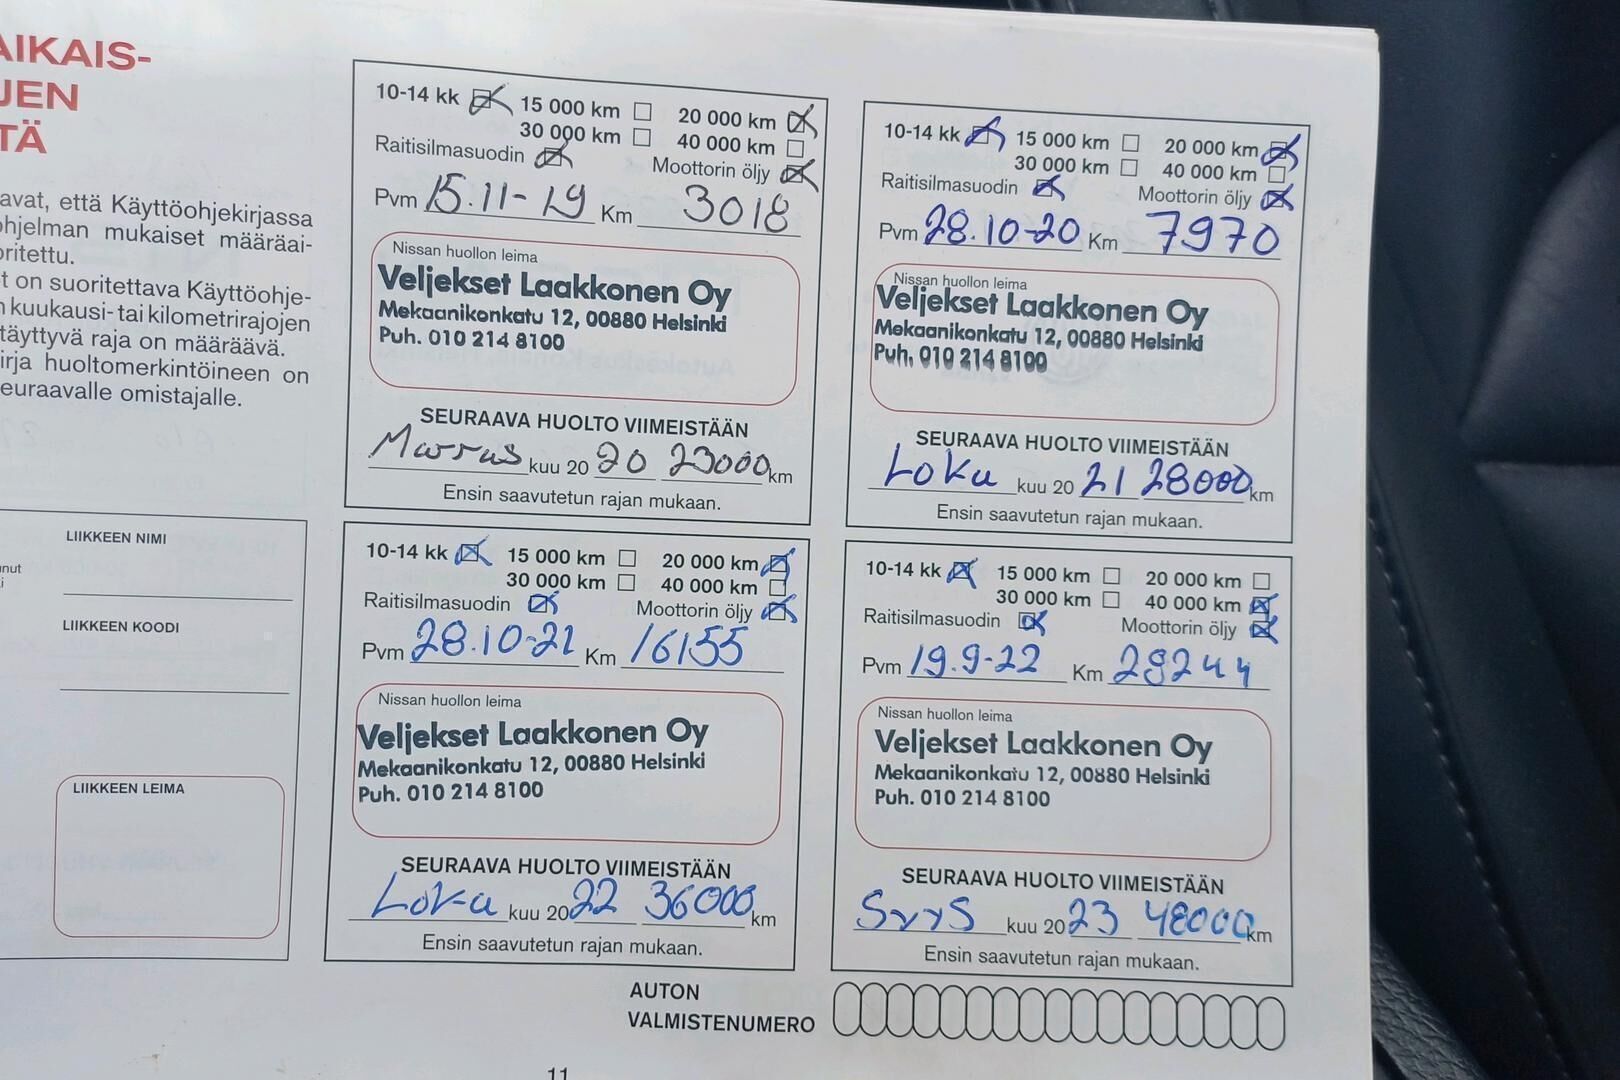 AIKAIS-
JEN
TÄ
avat, että Käyttöohjekirjassa
ohjelman mukaiset määräai-
oritettu.
t on suoritettava Käyttöohje-
n kuukausi- tai kilometrirajojen
täyttyvä raja on määräävä.
irja huoltomerkintöineen on
euraavalle omistajalle.
LIIKKEEN NIMI
nut
i
LIIKKEEN KOODI
LIIKKEEN LEIMA
10-14 kk 15 000 km 20 000 km
30 000 km 40 000 km
Raitisilmasuodin Moottorin öljy
Pvm 15.11-19 Km 3018
Nissan huollon leima
Veljekset Laakkonen Oy
Mekaanikonkatu 12, 00880 Helsinki
Puh. 010 214 8100
SEURAAVA HUOLTO VIIMEISTÄÄN
Marras kuu 20 20 23000 km
Ensin saavutetun rajan mukaan.
10-14 kk 15 000 km 20 000 km
30 000 km 40 000 km
Raitisilmasuodin Moottorin öljy
Pvm 28.10-20 Km 7970
Nissan huollon leima
Veljekset Laakkonen Oy
Mekaanikonkatu 12, 00880 Helsinki
Puh. 010 214 8100
SEURAAVA HUOLTO VIIMEISTÄÄN
Loka kuu 20 21 28000 km
Ensin saavutetun rajan mukaan.
10-14 kk 15 000 km 20 000 km
30 000 km 40 000 km
Raitisilmasuodin Moottorin öljy
Pvm 28.10-21 Km 16155
Nissan huollon leima
Veljekset Laakkonen Oy
Mekaanikonkatu 12, 00880 Helsinki
Puh. 010 214 8100
SEURAAVA HUOLTO VIIMEISTÄÄN
Loka kuu 20 22 36000 km
Ensin saavutetun rajan mukaan.
10-14 kk 15 000 km 20 000 km
30 000 km 40 000 km
Raitisilmasuodin Moottorin öljy
Pvm 19.9-22 Km 29244
Nissan huollon leima
Veljekset Laakkonen Oy
Mekaanikonkatu 12, 00880 Helsinki
Puh. 010 214 8100
SEURAAVA HUOLTO VIIMEISTÄÄN
Syys kuu 20 23 48000 km
Ensin saavutetun rajan mukaan.
AUTON
VALMISTENUMERO
11